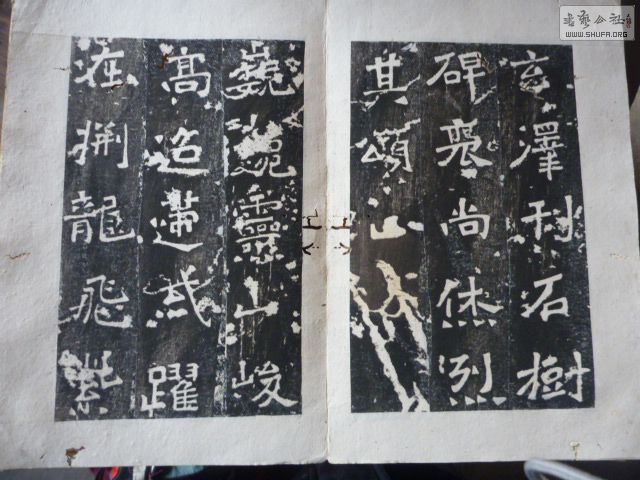 玄澤刊石樹
碑褒尚烋烈
其頌
巍巍靈山峻
高迢遰或躍
在淵龍飛紫
书艺公社
WWW.SHUFA.ORG